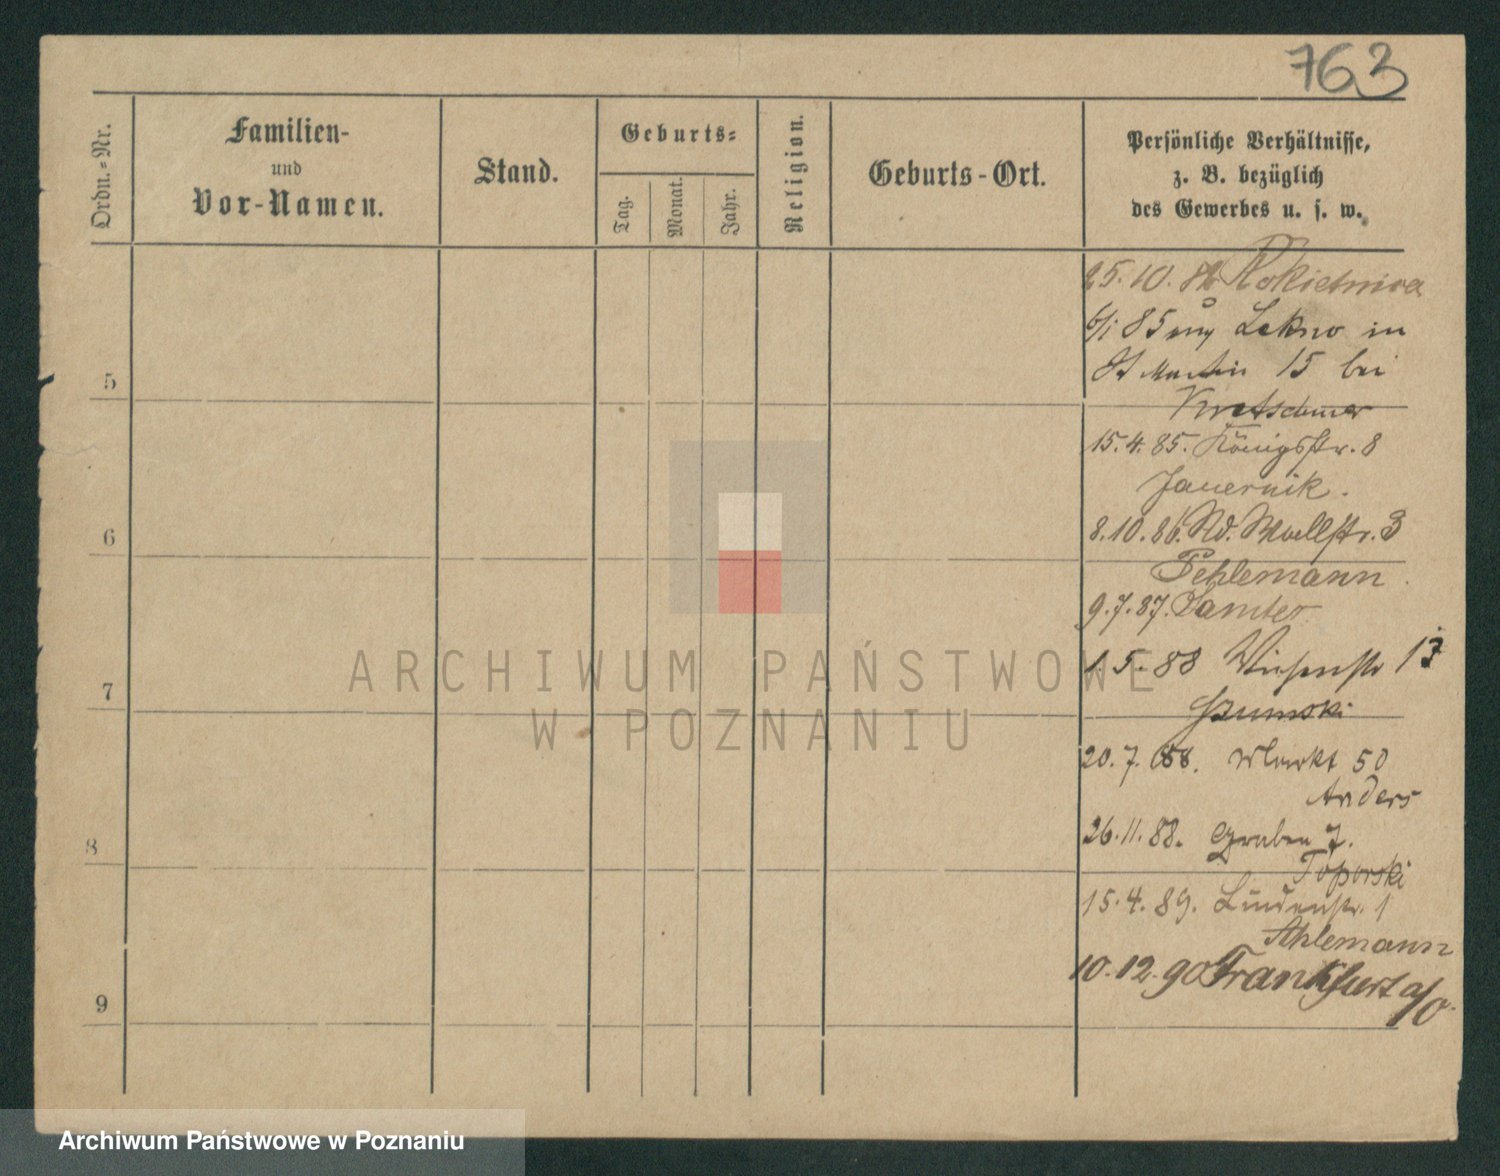 763
Ordn.-Nr.
Familien-
und
Vor-Namen.
Stand.
Geburts-
Tag.
Monat.
Jahr.
Religion.
Geburts-Ort.
Persönliche Verhältnisse,
z. B. bezüglich
des Gewerbes u. s. w.
25.10.82 Rokietnica
6/1 85 Lekno in
St Martin 15 bei
5
Kretschmer
15.4.85. Königsstr. 8
Jauernik.
8.10.86. Nd. Wallstr. 3
6
Pehlemann.
9.7.87. Samter
1.5.88 Wiesenstr 13
7
Szumski
20.7.88. Markt 50
Anders
26.11.88. Graben 7.
8
Toporski
15.4.89. Lindenstr. 1
Ahlemann
10.12.90 Frankfurt a/O.
9
ARCHIWUM PAŃSTWOWE
W POZNANIU
Archiwum Państwowe w Poznaniu